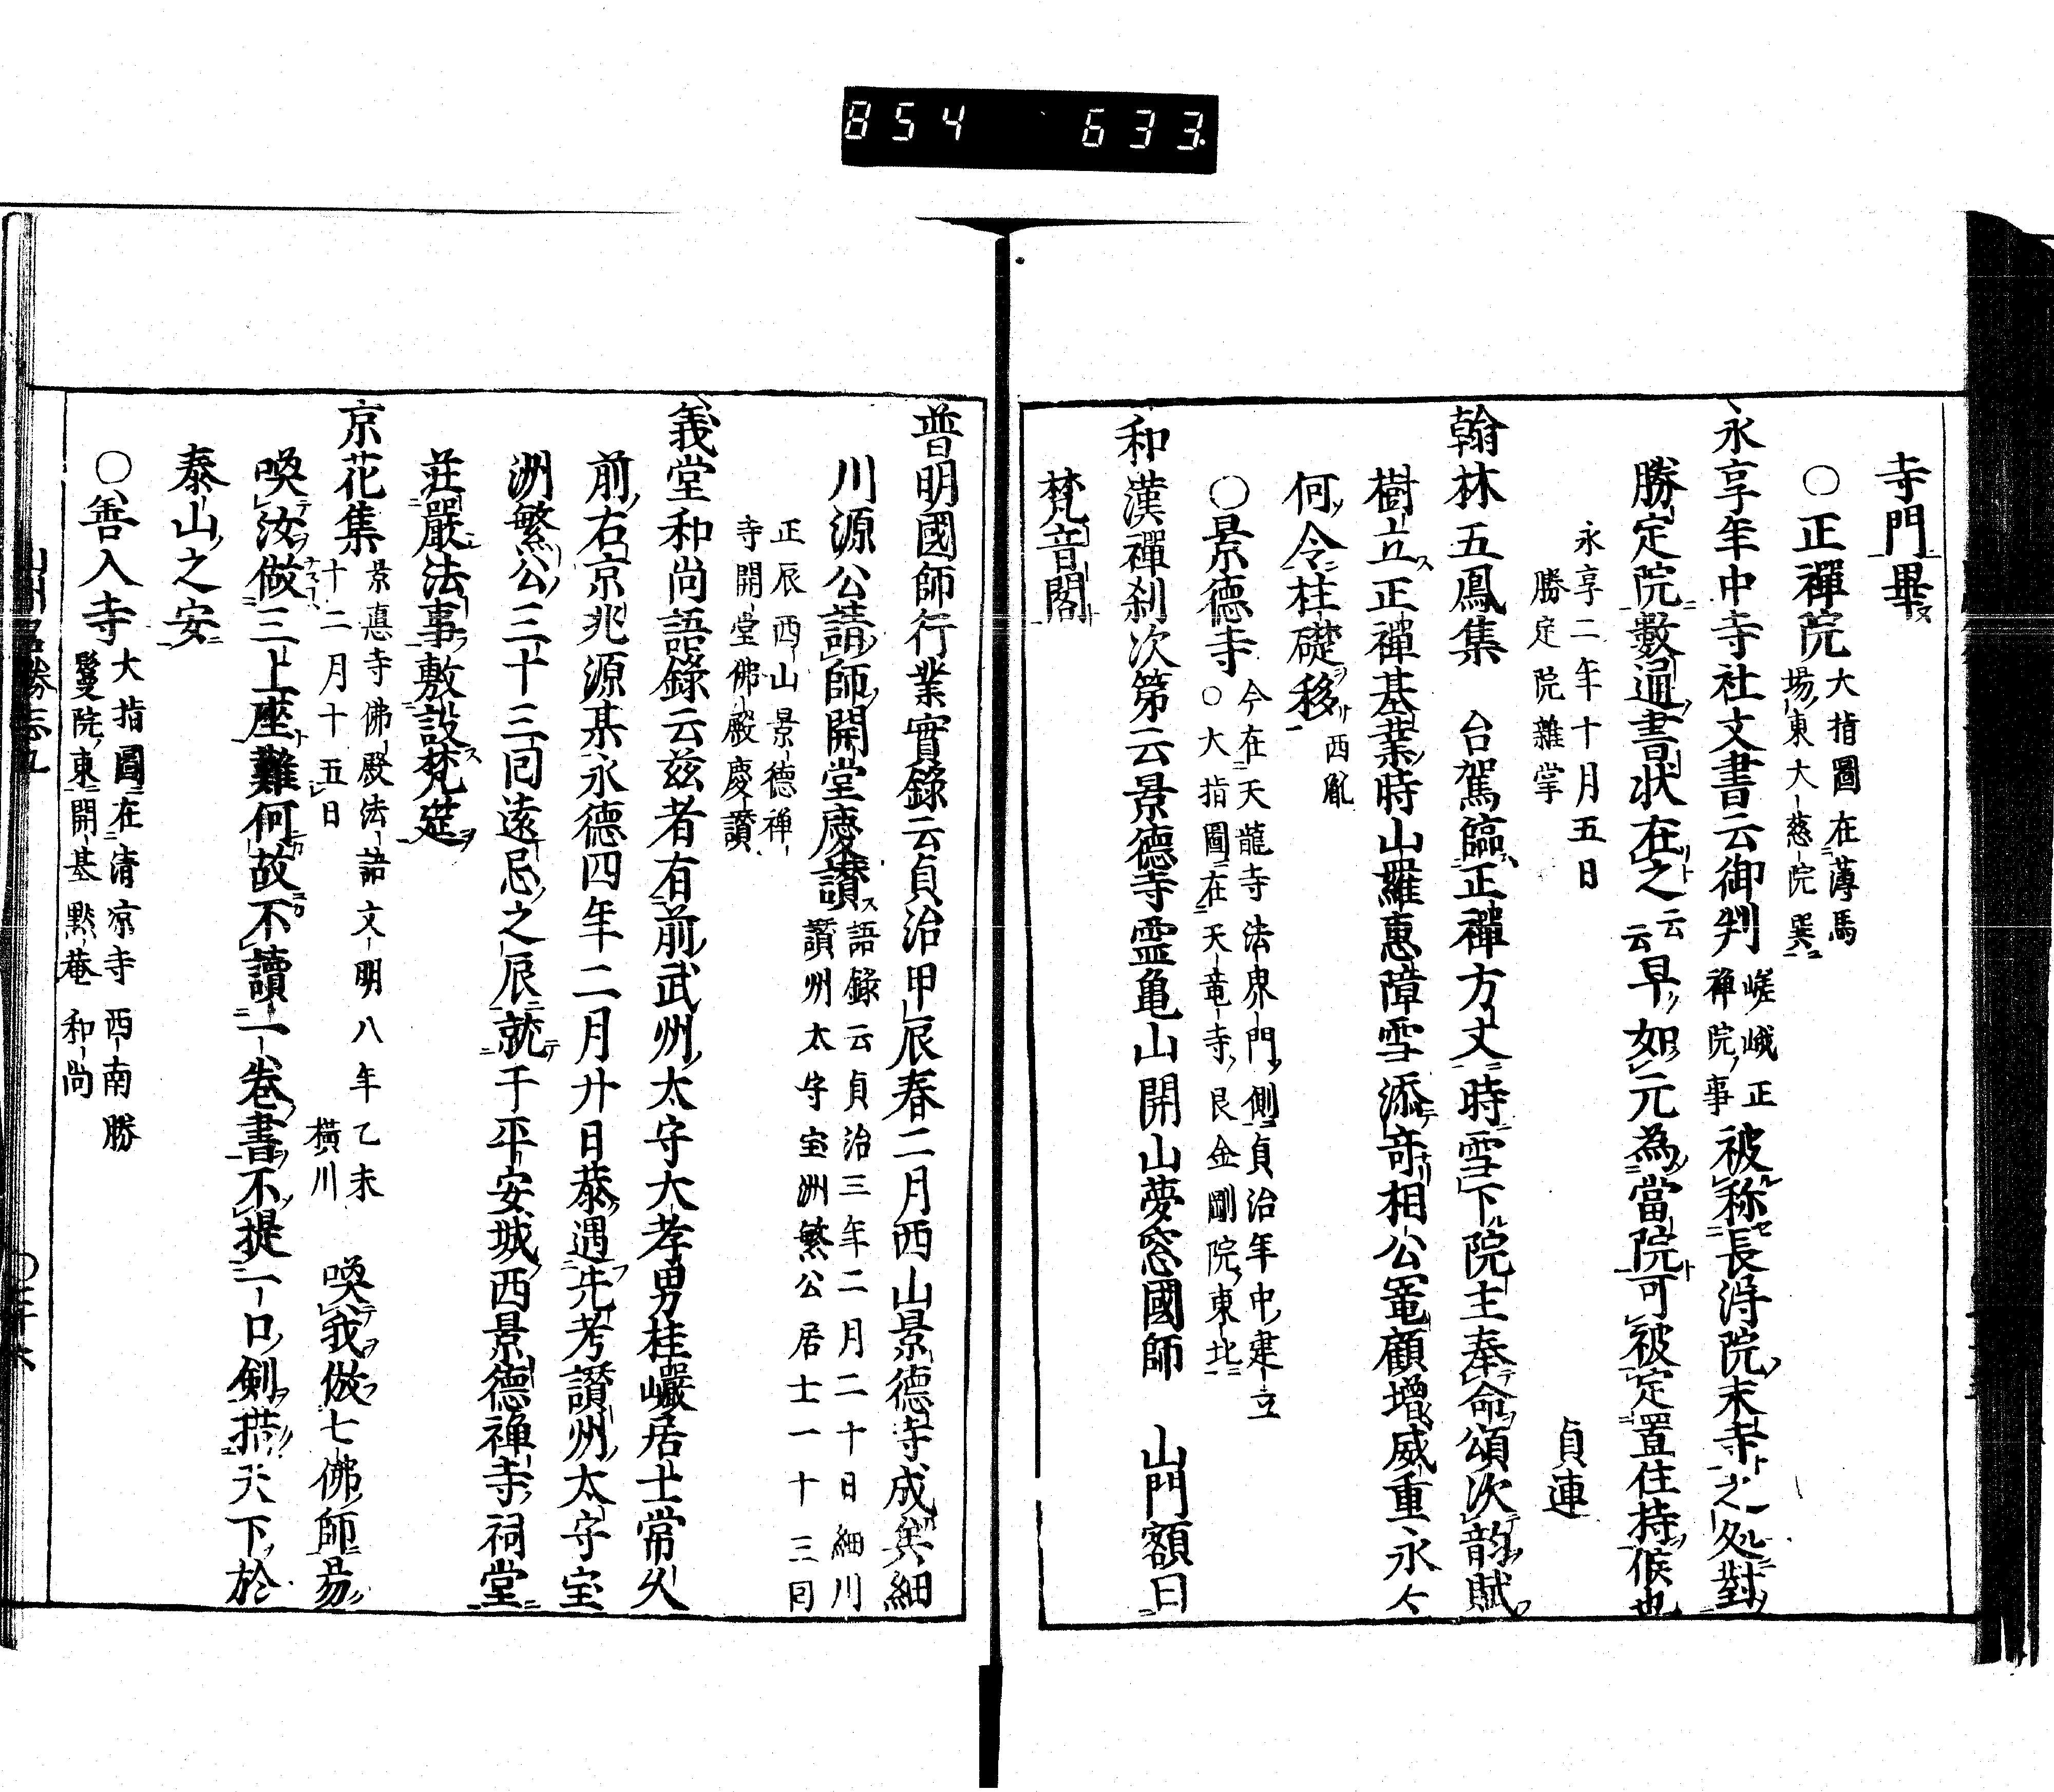 854 633.
寺門畢
○正禪院 大指圖在薄馬
場東大慈院巽
永享年中寺社文書云御判 嵯峨正
禅院事 被称長淂院末寺之処對
勝定院数通書状在之 云云 早如元為當院可被定置住持候也
永享二年十月五日 貞連
勝定院雜掌
翰林五鳳集 台駕臨正禪方丈時雪下院主奉命頌次韵賦
樹立正禪基業時山羅惠障雪添竒相公寵顧增威重永令
何令柱礎移 西胤
○景德寺 今在天龍寺法界門側貞治年中建立
○大指圖在天竜寺艮金剛院東北
和漢禪刹次第云景德寺霊亀山開山夢窓國師 山門額曰
梵音閣
普明國師行業實錄云貞治甲辰春二月西山景德寺成矣細
川源公請師開堂慶讃 語錄云貞治三年二月二十日細川
讃州太守宝洲繁公居士一十三囘
正辰西山景德禅
寺開堂佛殿慶讃
義堂和尚語錄云茲者有前武州太守大孝男桂巖居士常久
前右京兆源某永德四年二月廾日恭遇先考讃州太守宝
洲繁公三十三囘遠忌之辰就于平安城西景德禅寺祠堂
莊嚴法事敷設梵莚
京花集 景悳寺佛殿法語文明八年乙未
十二月十五日 橫川 喚我做七佛師易
喚汝做三上座難何故不讀一卷書不提一口剣措天下於
泰山之安
○善入寺 大指圖在清凉寺西南勝
鬘院東開基黙菴和尚
山州名勝志九